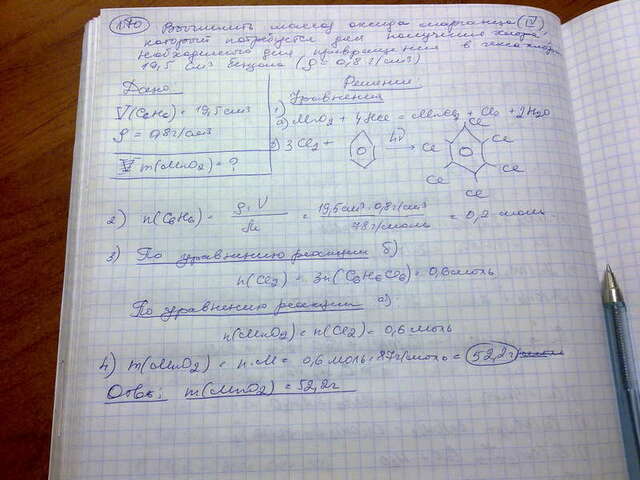 170 Вычислить массу оксида марганца (IV),
который потребуется для получения хлора,
необходимого для превращения в гексахлор
19,5 см3 бензола (ρ = 0,8 г/см3)
Дано
V(C6H6) = 19,5 см3
ρ = 0,8 г/см3
m(MnO2) = ?
Решение:
1) Уравнения
а) MnO2 + 4HCl = MnCl2 + Cl2 + 2H2O
б) 3Cl2 + hν →
Cl
Cl Cl
Cl Cl
Cl
2) n(C6H6) = ρ·V / M = 19,5 см3·0,8 г/см3 / 78 г/моль = 0,2 моль
3) По уравнению реакции б):
n(Cl2) = 3n(C6H6Cl6) = 0,6 моль
По уравнению реакции а):
n(MnO2) = n(Cl2) = 0,6 моль
4) m(MnO2) = n·M = 0,6 моль·87 г/моль = 52,2 г
Ответ: m(MnO2) = 52,2 г